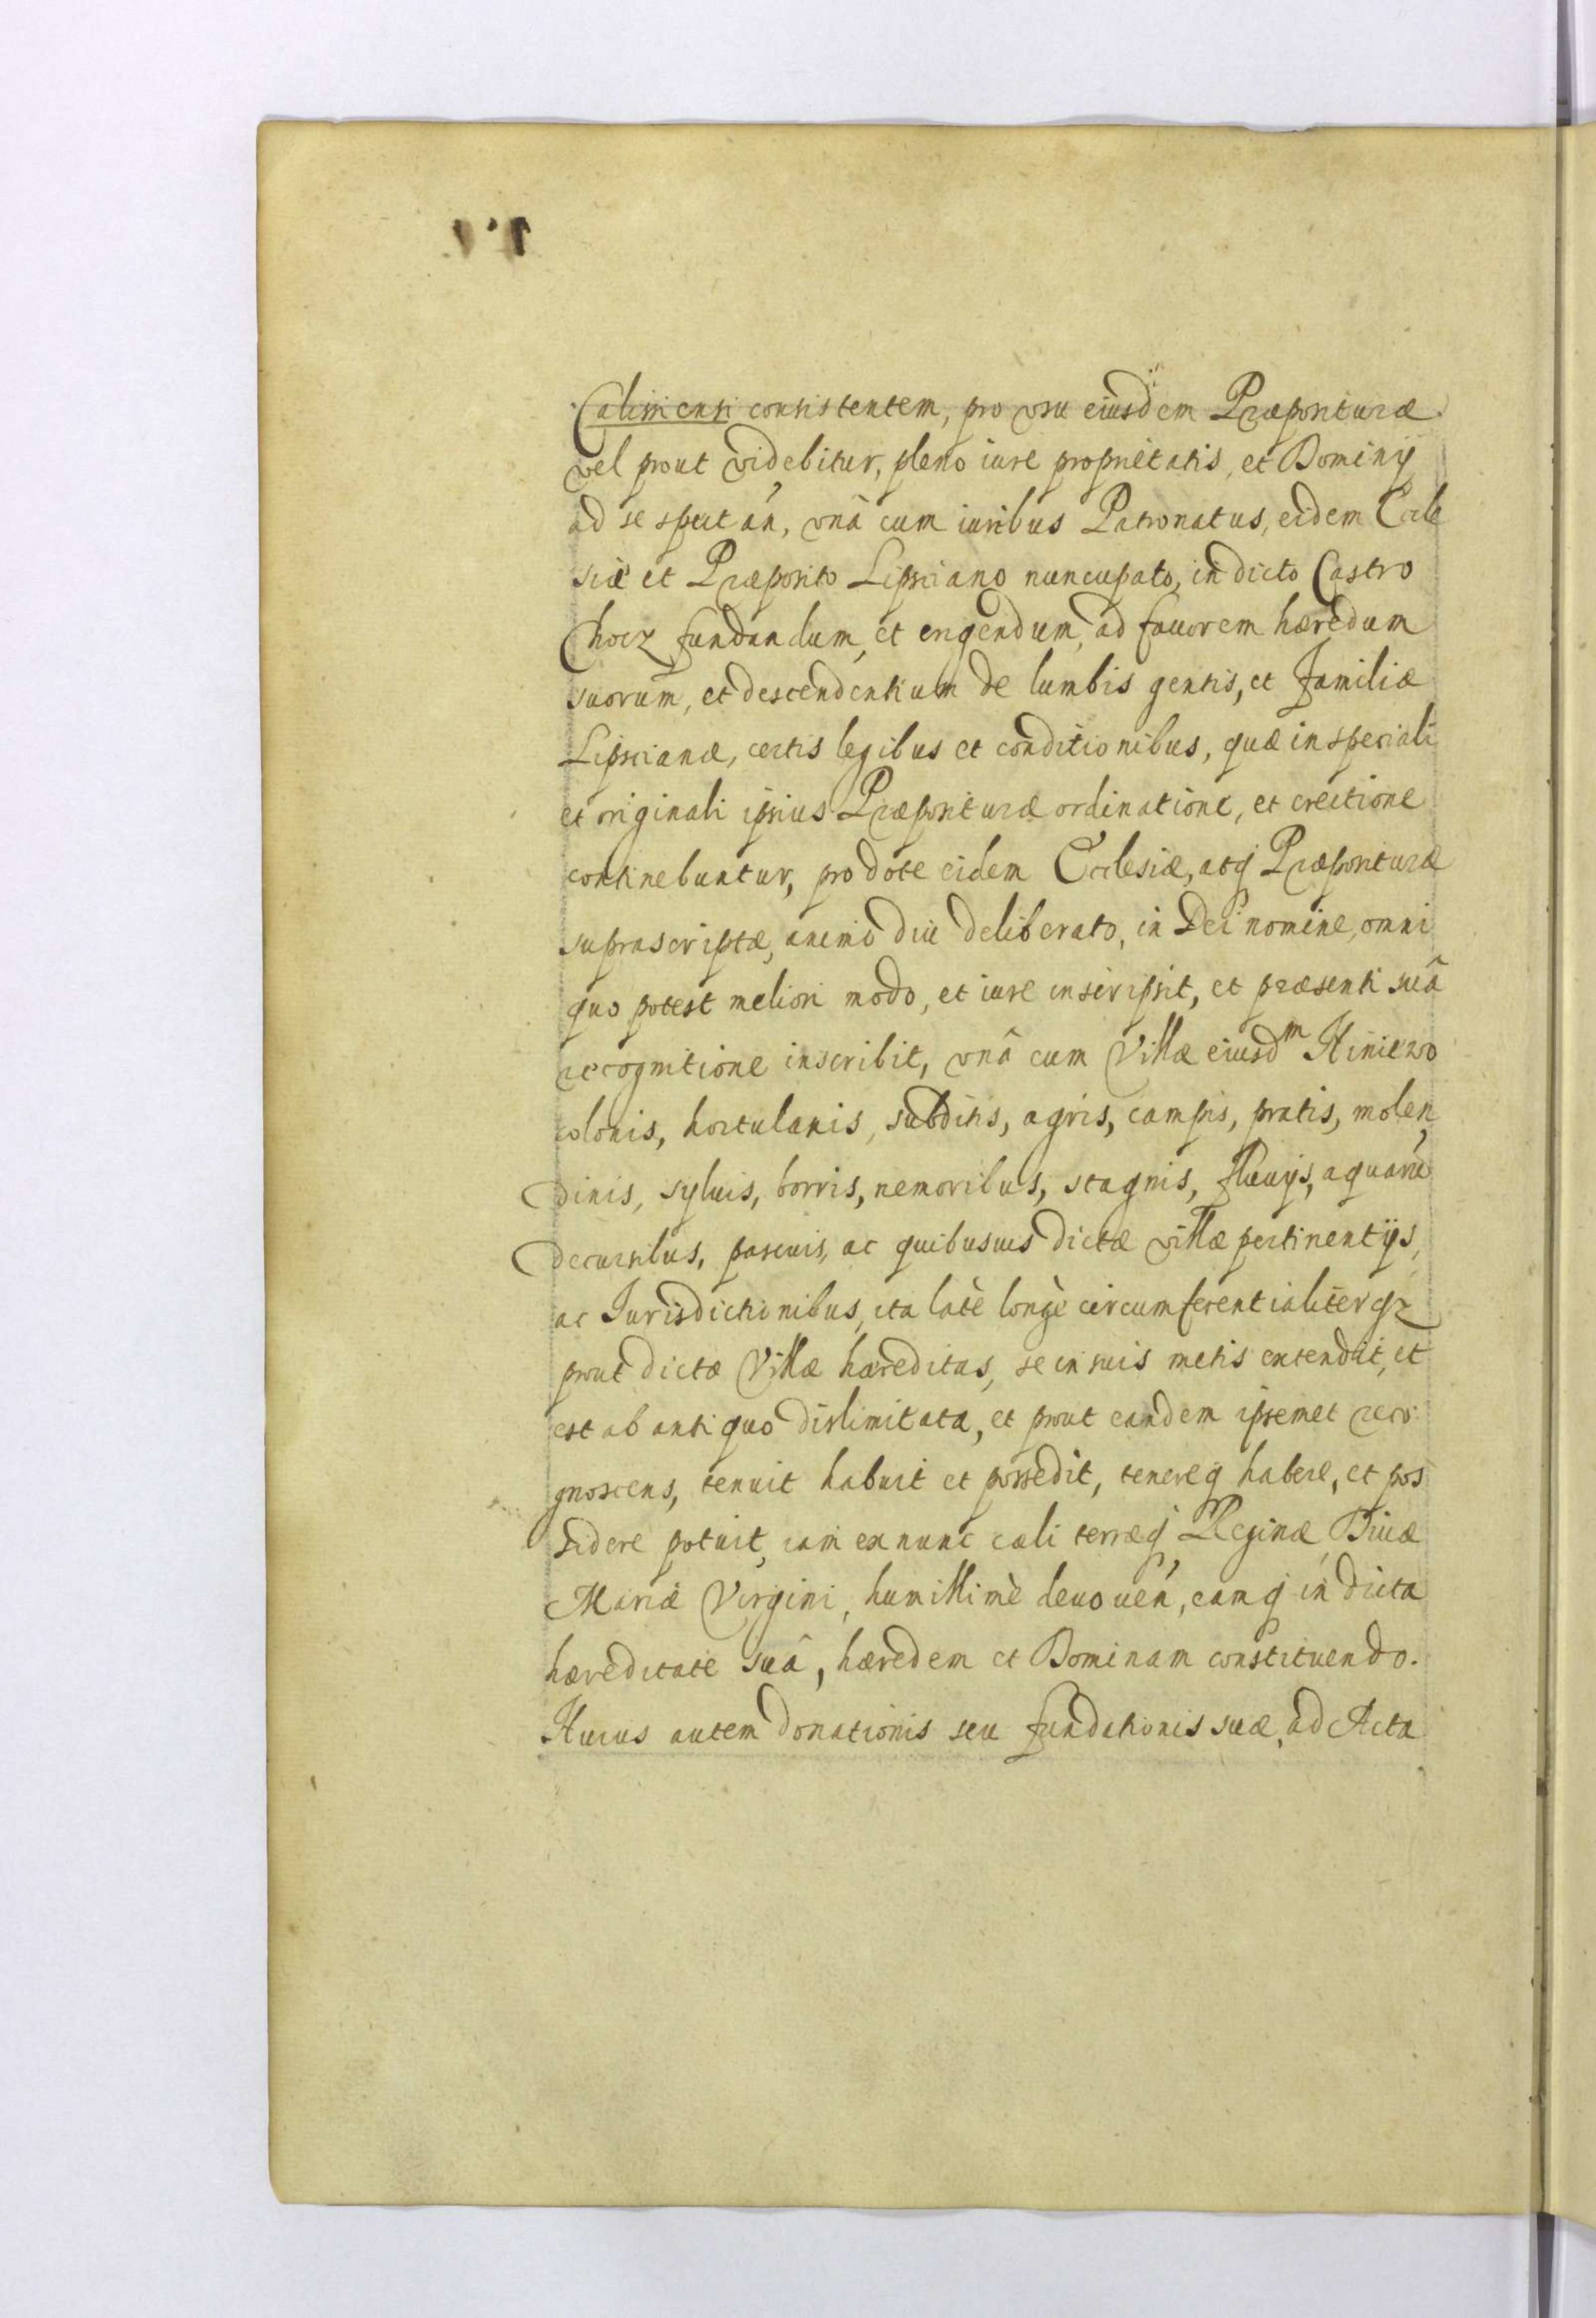 Calissiensi consistentem, pro vsu eiusdem Præposituræ
vel prout videbitur, pleno iure proprietatis, et Dominij
ad se spectań, vnâ cum iuribus Patronatus, eidem Eccle
siæ et Præposito Lipsciano nuncupato, in dicto Castro
Chocz fundandum, et erigendum, ad fauorem hæredum
suorum, et descendentium de lumbis gentis, et Familiæ
Lipscianæ, certis legibus et conditionibus, quæ in speciali
et originali ipsius Præposituræ ordinatione, et erectione
continebuntur, pro dote eidem Ecclesiæ, atq Præposituræ
suprascriptæ, animo diu deliberato, in Dei nomine, omni
quo potest meliori modo, et iure inscripsit, et præsenti suâ
recognitione inscribit, vnâ cum Villæ eiusdm Kiniewo
colonis, hortulanis, subditis, agris, campis, pratis, molen
dinis, syluis, borris, nemoribus, stagnis, fluuijs, aquarū
decursibus, pascuis, ac quibusuis dictæ villæ pertinentijs,
ac Jurisdictionibus, ita latè longè circumferentialiterqz
prout dictæ Villæ hæreditas, se in suis metis extendit, et
est ab antiquo dislimitata, et prout eandem ipsemet reco
gnoscens, tenuit habuit et possedit, tenereq habere, et pos
sidere potuit, iam ex nunc cæli terræq Reginæ Diuæ
Mariæ Virgini, humillimè deuoueń, eamq in dicta
hæreditate suâ, hæredem et Dominam constituendo.
Huius autem donationis seu fundationis suæ, ad Acta